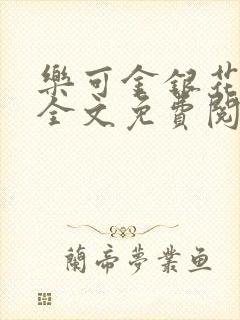 樂可金銀花
全文免費閱
蘭帝夢業鱼